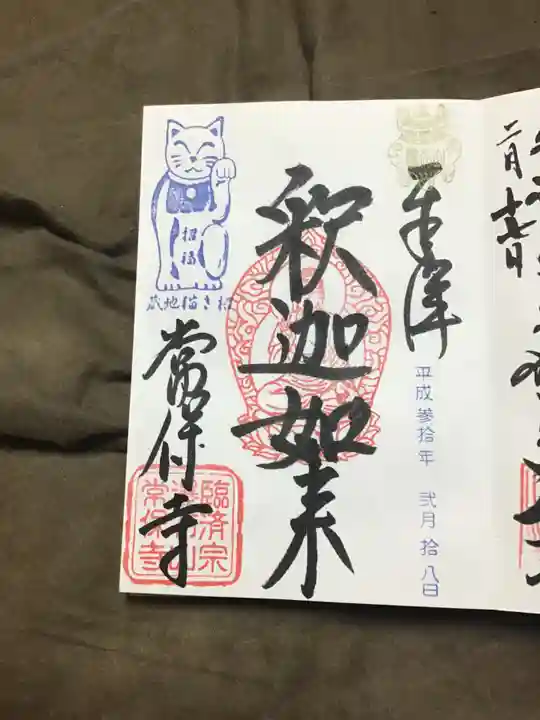 二月十七日
奉拝
平成参拾年 弐月拾八日
釈迦如来
招福
招き猫地蔵
常保寺
臨済宗
常保寺